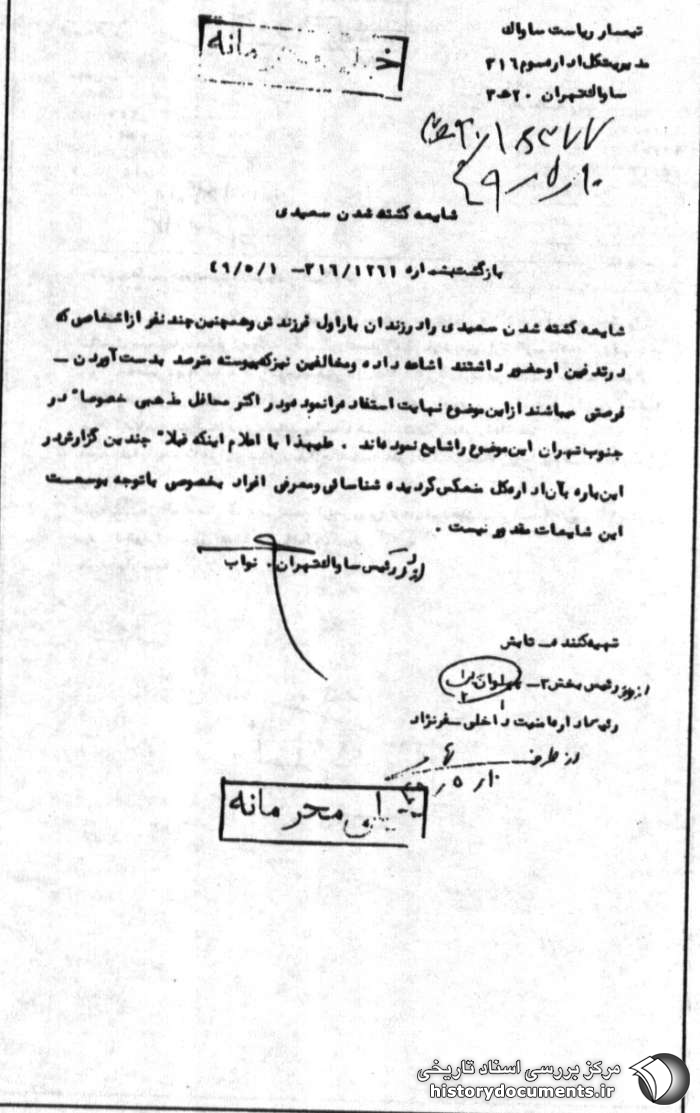 تیمسار ریاست ساواک
خیلی محرمانه
مدیریت کل اداره سوم ۳۱۶
ساواک تهران ۲۰ ه ۳
شایعه کشته شدن سعیدی
بازگشت بشماره ۳۱۶/۱۲۶۱ – ۴۹/۵/۱
شایعه کشته شدن سعیدی را در زندان بار اول فرزندش و همچنین چند نفر از اشخاصی که
در تدفین او حضور داشتند اشاعه داده و مخالفین نیز که پیوسته مترصد بدست آوردن –
فرصتی میباشند از این موضوع نهایت استفاده را نموده و در اکثر محافل مذهبی خصوصاً در
جنوب تهران این موضوع را شایع نموده‌اند . علیهذا با اعلام اینکه قبلاً چندین گزارش در
این باره بآن اداره کل منعکس گردیده شناسائی و معرفی افراد بخصوصی باتوجه بوسعت
این شایعات مقدور نیست .
رئیس ساواک تهران . نواب
تهیه کننده – تابش
رئیس بخش ۳ – پهلوان
رئیس اداره امنیت داخلی صفرنژاد
از طرف
خیلی محرمانه
مرکز بررسی اسناد تاریخی
historydocuments.ir